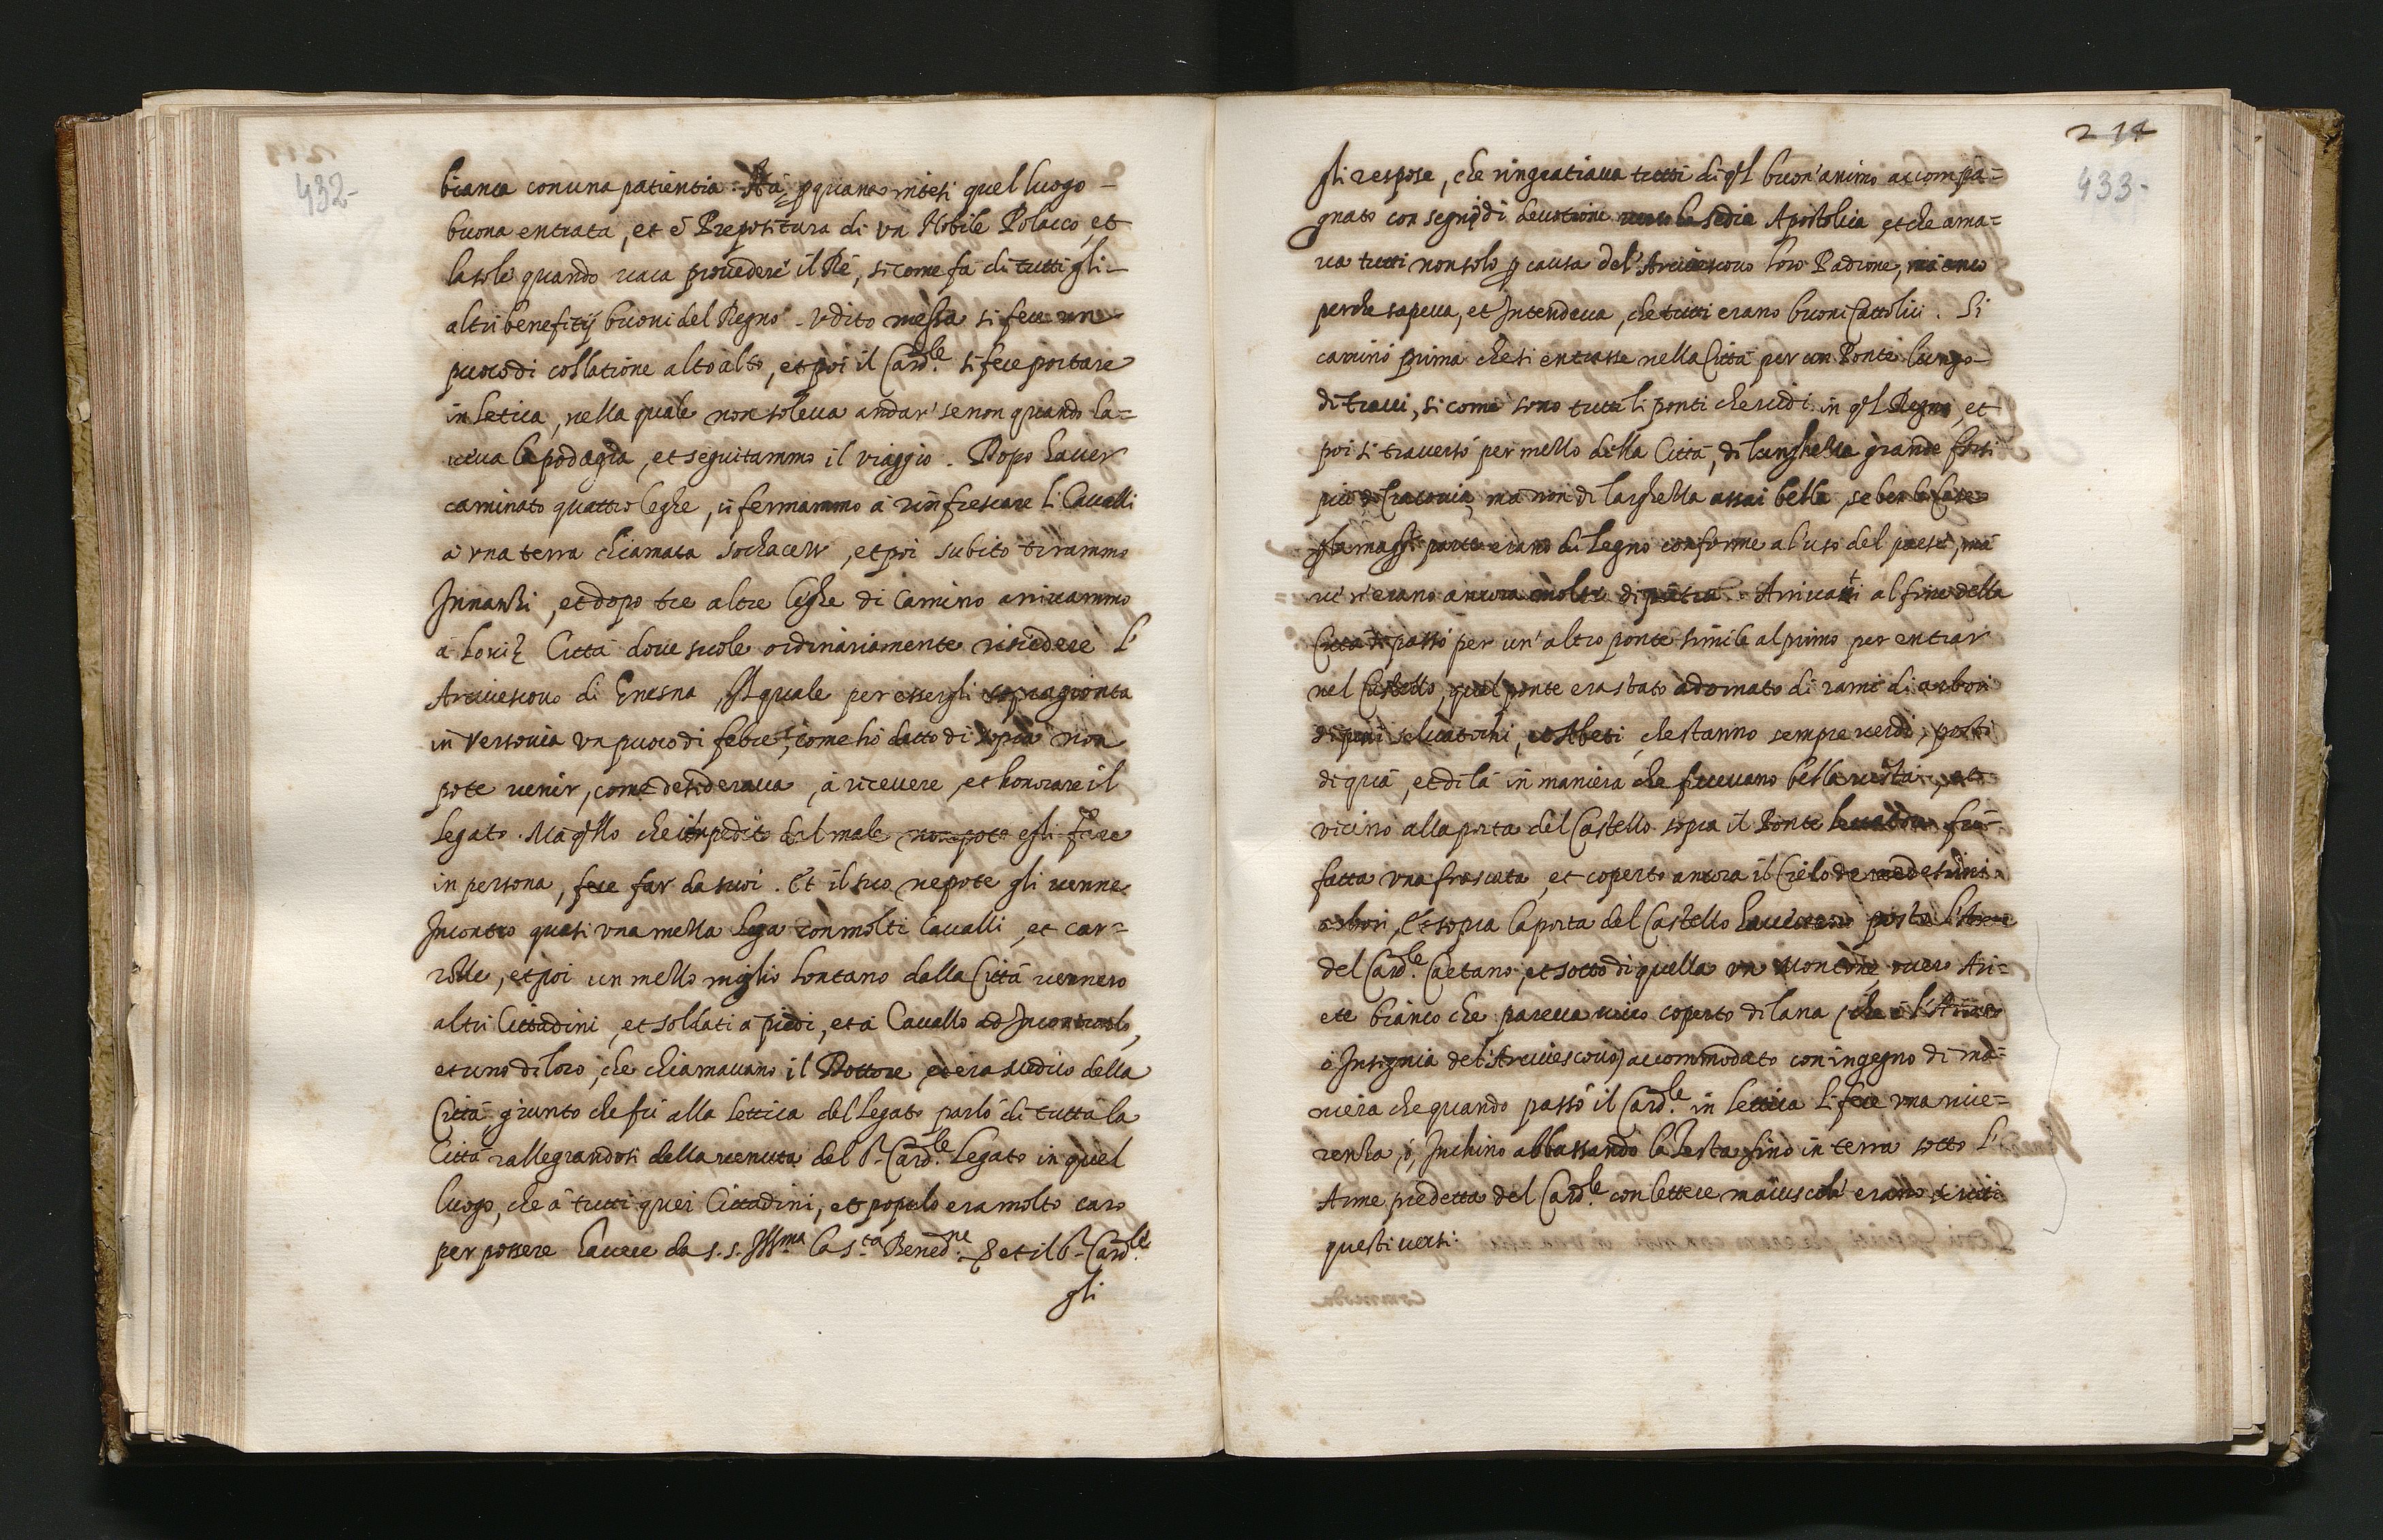 432-
bianca con una patientia. Ha p quanto intesi quel luogo -
buona entrata, et è Prepositura di un Nobile Polacco, et
la sole quando vaca provedere il Rè, si come fà di tutti gli -
altri beneficij buoni del Regno. Udito messa si fece un
puoco di collatione alto alto, et poi il Card.le si fece portare
in letica, nella quale non soleva andar' se non quando ha=
veva la podagra, et seguitammo il viaggio. Dopo haver
caminato quattro leghe, ci fermammo à rinfrescare li Cavalli
à una terra chiamata Sochacew, et poi subito tirammo
Innanzi, et dopo tre altre leghe di Camino arrivammo
à Loviz Città dove suole ordinariamente risiedere l'
Arcivescovo di Gnesna, Il quale per essergli sopragionta
in Versovia un puoco di febre, come hò detto di sopra non
pote venir, come desiderava, à ricevere, et honorare il
legato. Ma qllo che impedito dal male non pote egli fare
in persona, fece far da suoi. Et il suo nepote gli venne
Incontro quasi una mezza lega con molti Cavalli, et car=
rozze, et poi un mezzo miglio lontano dalla Città vennero
altri Cittadini, et soldati à piedi, et à Cavallo ad Incontrarlo,
et uno di loro, che chiamavano il Dottore, et era medico della
Città, giunto che fù alla lettica del Legato parlò di tutta la
Città rallegrandosi della venuta del S.r Card.le Legato in quel
luogo, che à tutti quei Cittadini, et populo era molto caro
per potere havere da S. S. Ill.ma la S.ta Bened.ne et il S.r Card.le
gli
214
433-
gli respose, che ringratiava tutti di ql buon'animo accompa=
gnato con segni di devotione verso la sedia Apostolica, et che ama=
va tutti non solo p causa del'Arcivescovo loro Padrone, mà anco
perche sapeva, et Intendeva, che tutti erano buoni Cattolici. Si
caminò prima che si entrasse nella Città per un Ponte lungo
di travi, si come sono tutti li ponti che vidi in ql Regno, et
poi si traversò per mezzo della Città, di lunghezza grande forsi
più di Cracovia, ma non di larghezza assai bella, se ben le Case
p la magg.r parte erano di legno conforme al'uso del paese, mà
ve n'erano ancora molte di pietra. Arrivati al fine della
Città si passò per un'altro ponte simile al primo per entrar
nel Castello, quel ponte era stato adornato di rami di arbori
di pini selvatichi, et Abeti, che stanno sempre verdi, posti
di quà, et di là in maniera che facevano bella vista, et
vicino alla porta del Castello sopra il Ponte levatore fù
fatta una frascata, et coperto ancora il Cielo de medesimi
arbori, Et sopra la porta del Castello havevano posto l'Arme
del Card.le Caetano, et sotto di quella un Montone, overo Ari=
ete bianco che pareva vivo coperto di lana (che è l'Arme
ò Insignia del'Arcivescovo) accommodato con ingegno di ma=
niera che quando passò il Card.le in lettica li fece una rive=
renza, ò, Inchino abbassando la testa fino in terra sotto l'
Arme predetta del Card.le con lettere maiuscole erano scritti
questi versi: